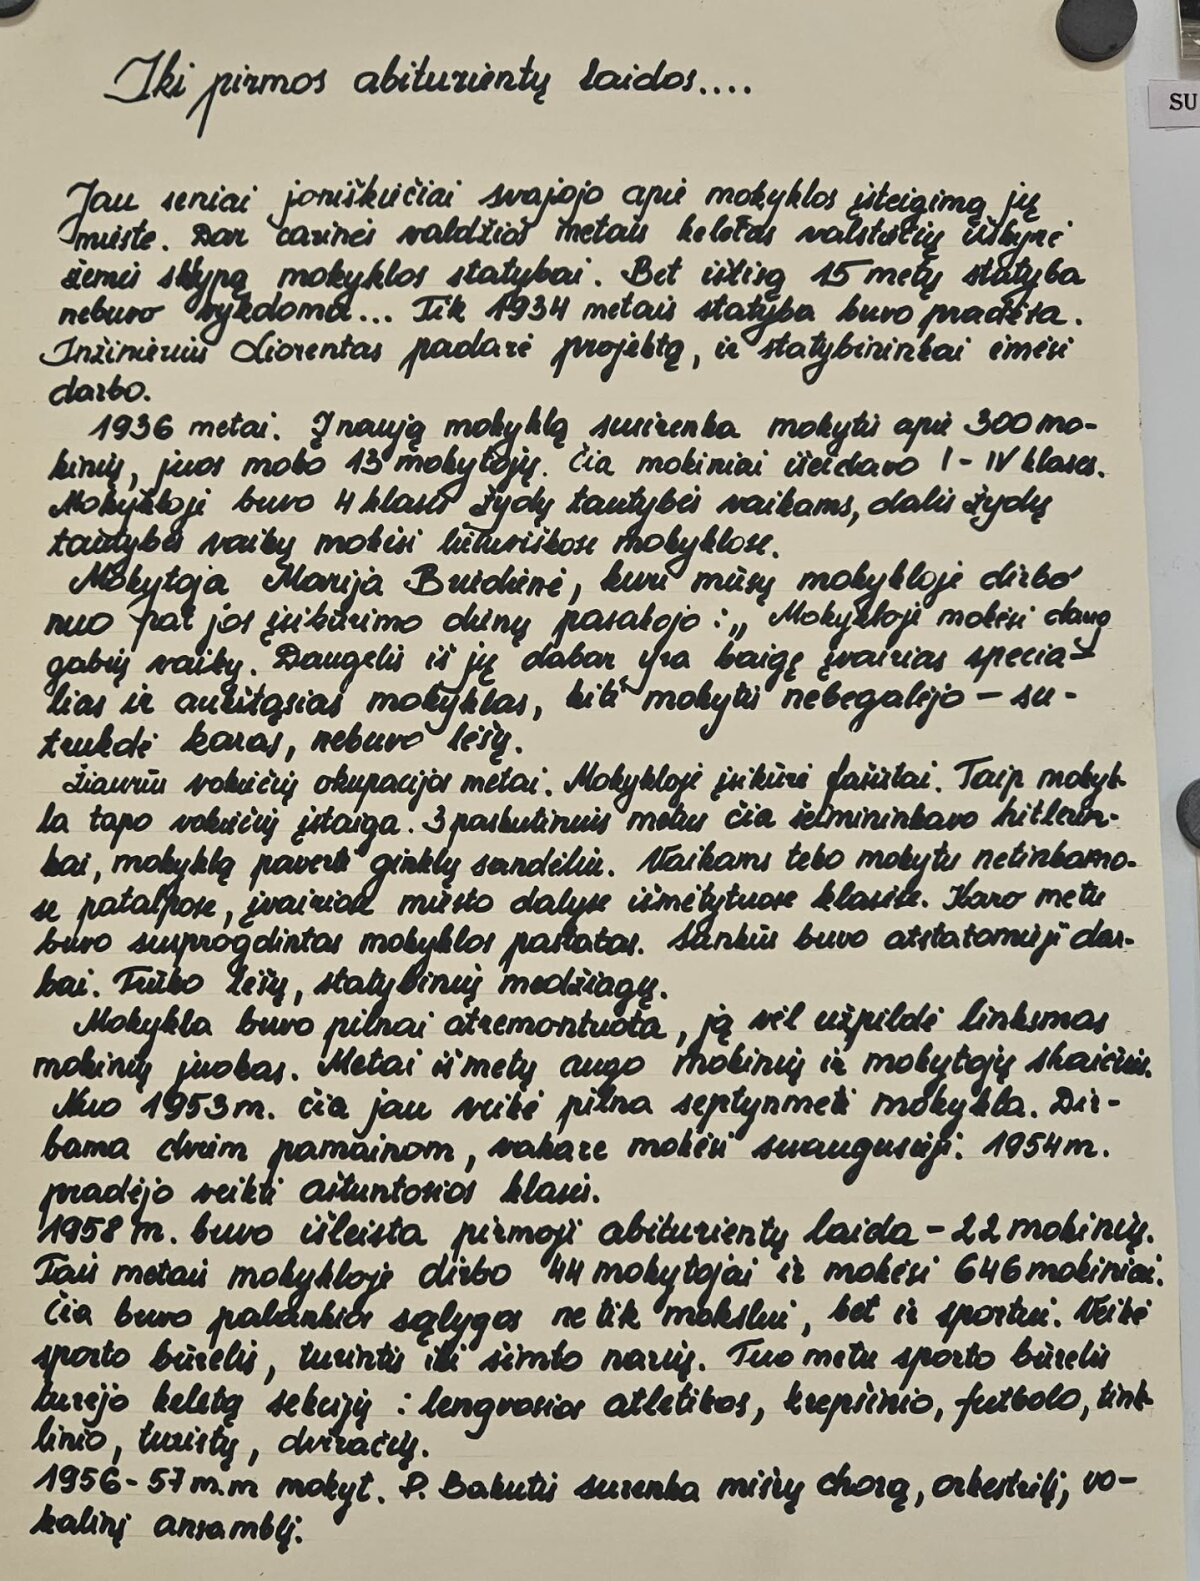 Iki pirmos abiturientų laidos....
SU
Jau seniai joniškiečiai svajojo apie mokyklos įsteigimą jų
mieste. Dar carinės valdžios metais keletas valstiečių išskyrė
žemės sklypą mokyklos statybai. Bet ištisą 15 metų statyba
nebuvo vykdoma... Tik 1934 metais statyba buvo pradėta.
Inžinierius Liorentas padarė projektą, ir statybininkai ėmėsi
darbo.
1936 metai. Į naują mokyklą susirenka mokytis apie 300 mo-
kinių, juos moko 13 mokytojų. Čia mokiniai išeidavo I-IV klases.
Mokykloje buvo 4 klasės žydų tautybės vaikams, dalis žydų
tautybės vaikų mokėsi lietuviškose mokyklose.
Mokytoja Marija Bridienė, kuri mūsų mokykloje dirbo
nuo pat jos įsikūrimo dienų pasakojo: „Mokykloje mokėsi daug
gabių vaikų. Daugelis iš jų dabar yra baigę įvairias specia-
lias ir aukštąsias mokyklas, kiti mokytis nebegalėjo – su-
trukdė karas, nebuvo lėšų.
Žiaurūs vokiečių okupacijos metai. Mokykloje įsikūrė fašistai. Taip mokyk-
la tapo vokiečių įstaiga. 3 paskutinius metus čia šeimininkavo hitlerin-
kai, mokyklą pavertė ginklų sandėliu. Vaikams teko mokytis netinkamo-
se patalpose, įvairiose miesto dalyse išmėtytuose klasėse. Karo metu
buvo susprogdintas mokyklos pastatas. Sunkūs buvo atstatomieji dar-
bai. Trūko lėšų, statybinių medžiagų.
Mokykla buvo pilnai atremontuota, ją vėl užpildė linksmas
mokinių juokas. Metai iš metų augo mokinių ir mokytojų skaičius.
Nuo 1953 m. čia jau veikė pilna septynmetė mokykla. Dir-
bama dviem pamainom, vakare mokėsi suaugusieji. 1954 m.
pradėjo veikti aštuntosios klasės.
1958 m. buvo išleista pirmoji abiturientų laida – 22 mokinių.
Tais metais mokykloje dirbo 44 mokytojai ir mokėsi 646 mokiniai.
Čia buvo palankios sąlygos ne tik mokslui, bet ir sportui. Veikė
sporto būrelis, turintis iki šimto narių. Tuo metu sporto būrelis
turėjo keletą sekcijų: lengvosios atletikos, krepšinio, futbolo, tink-
linio, turistų, dviračių.
1956-57 m.m mokyt. P. Bakutis surenka mišrų chorą, orkestrėlį, vo-
kalinį ansamblį.